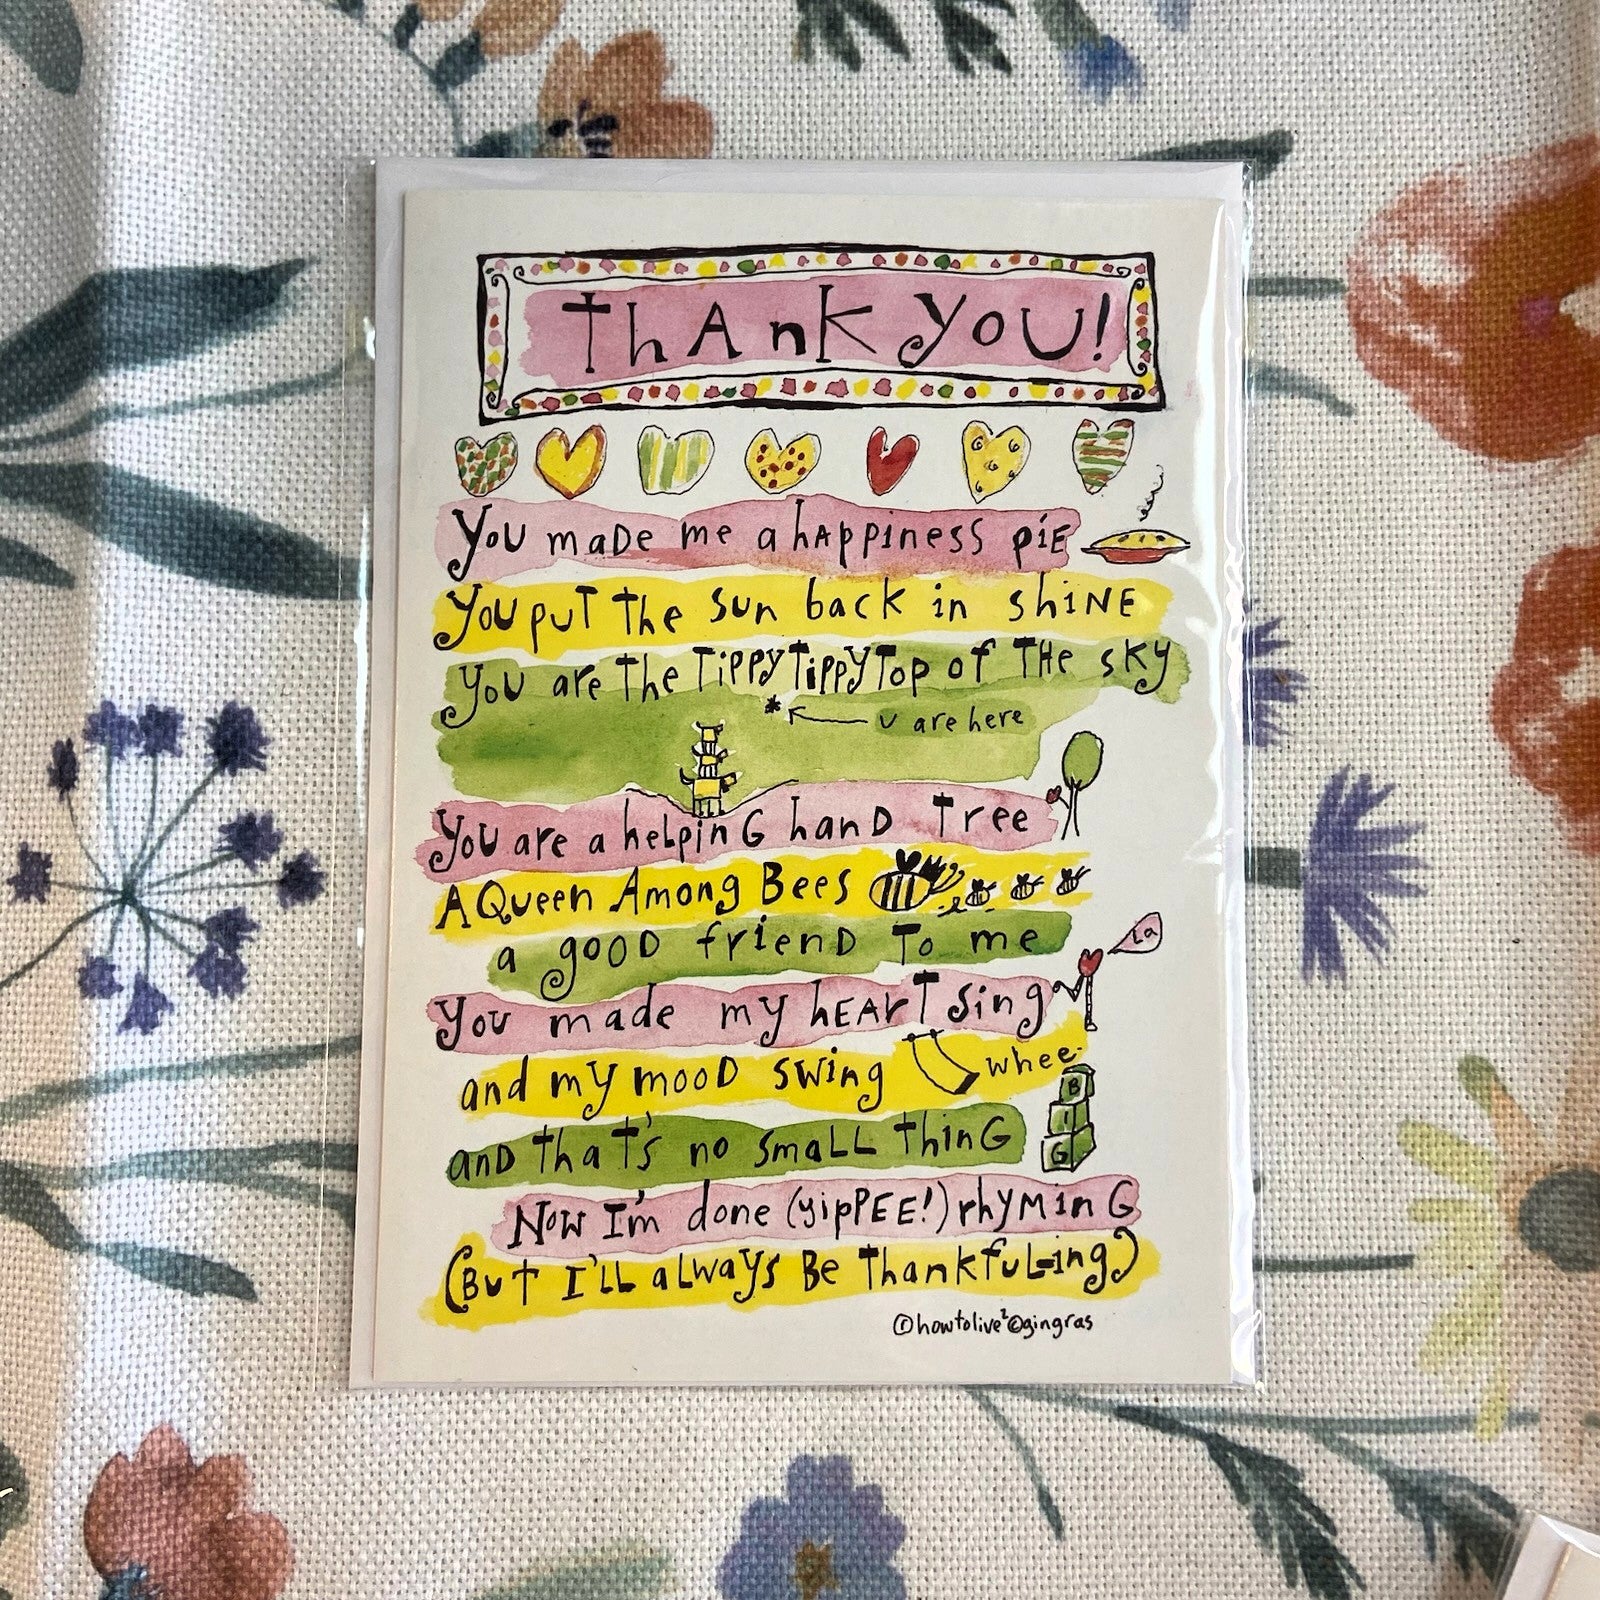 Thank you!
You made me a happiness pie
You put the sun back in shine
You are the TippyTippyTop of the sky
* ← u are here
You are a helping hand tree
A Queen Among Bees
a good friend to me
La
You made my heart sing
and my mood swing whee
B
I
G
and that's no small thing
Now I'm done (yippee!) rhyming
(But I'll always be thankful-ing)
©howtolive²©gingras